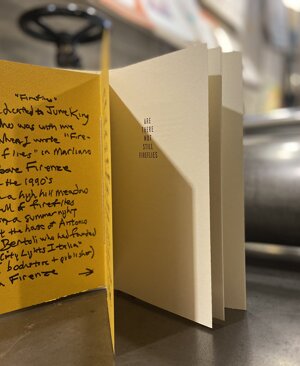 "Fireflies"
dedicated to June King
who was with me
when I wrote "Fire-
flies" in Marliano
above Firenze
in the 1990's
in a high hill meadow
full of fireflies
on a summer night
at the house of Antonio
Bertoli who had founded
"City Lights Italia"
(bookstore + publisher)
in Firenze →
ARE
THERE
NOT
STILL
FIREFLIES